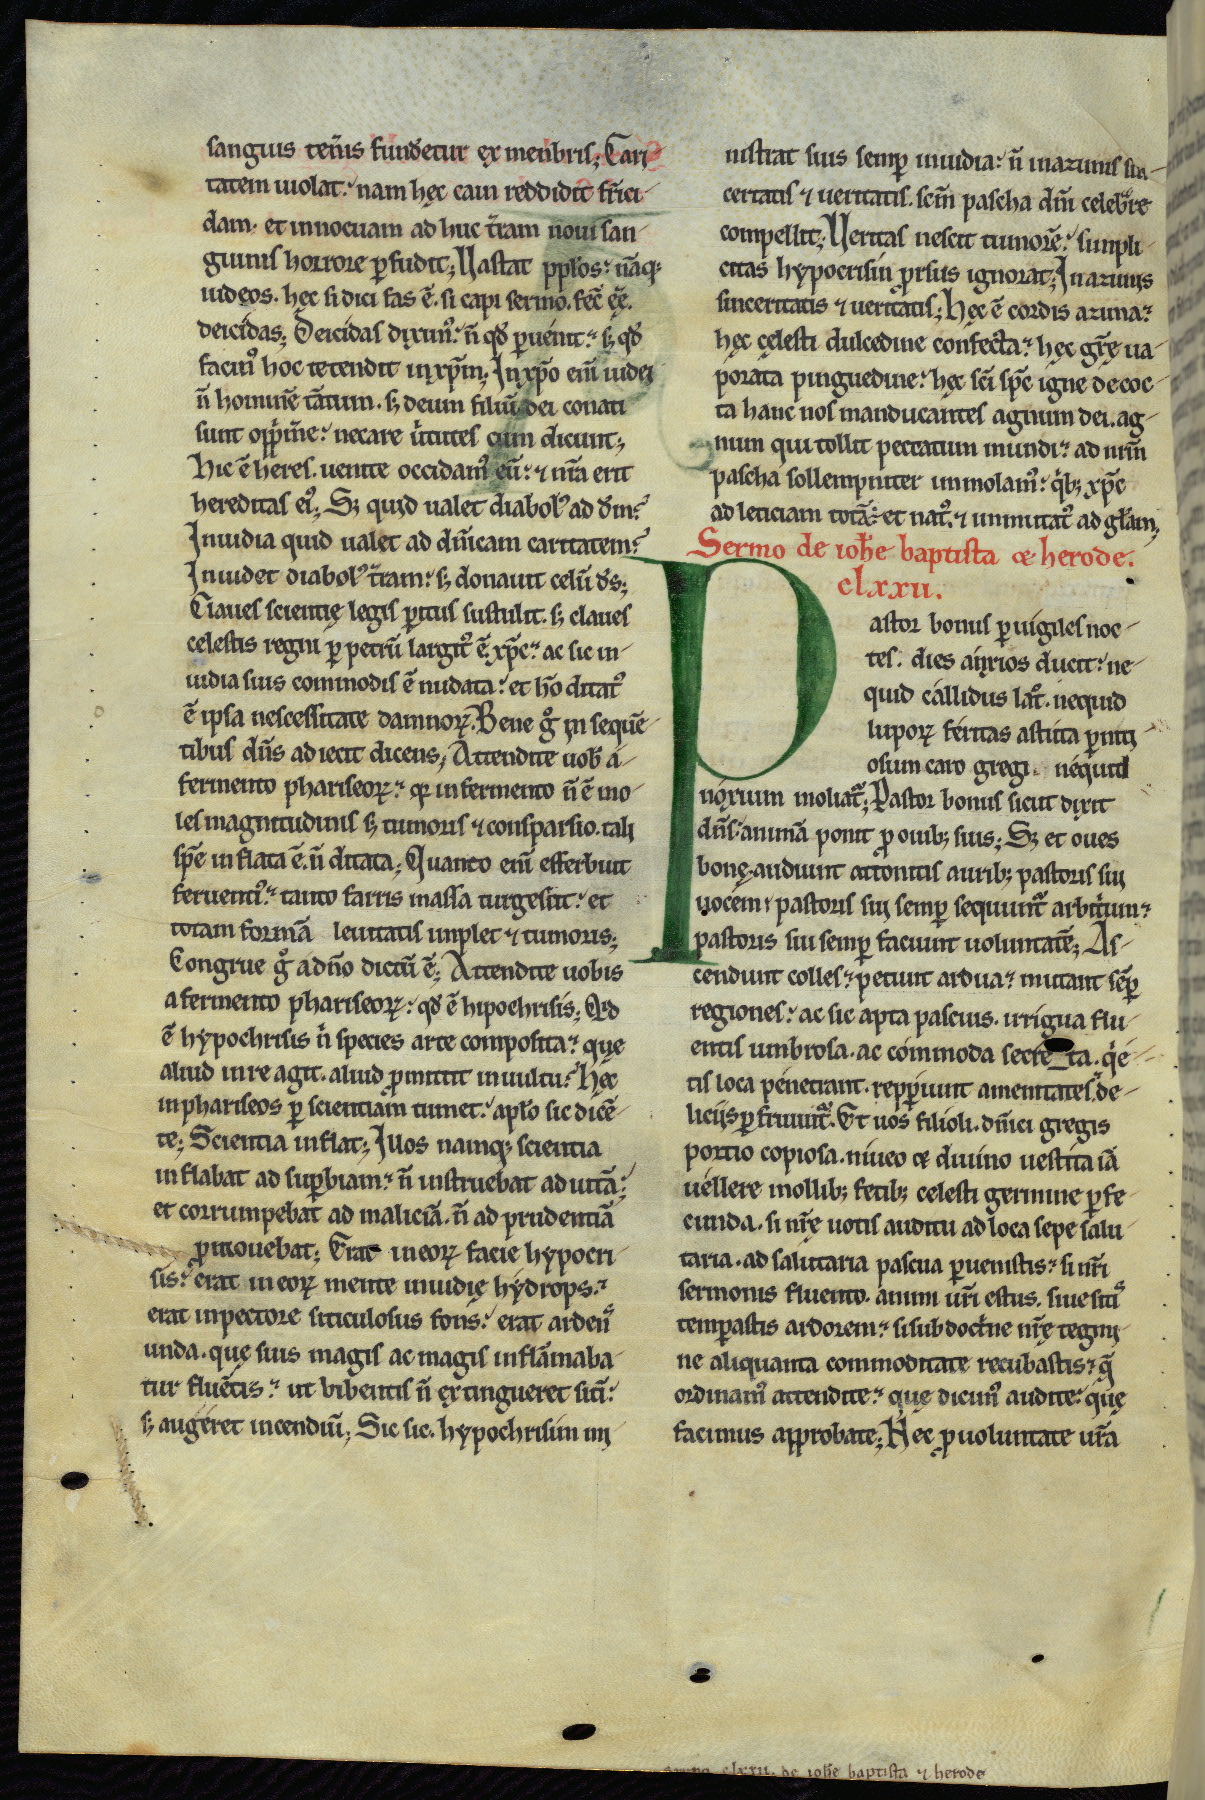 sanguis ten̄us funderetur ex menbris; Cari-
tatem uiolat:' nam hęc cain reddidit fr̄ici-
dam· et innocuam ad huc t̄ram noui san-
guinis horrore ꝑfudit; Uastat ppl̄os:' nāq;
iudeos. hęc si dici fas ē. si capi sermo. fec̄ ęē.
deicidas; Deicidas dixim᷒:' n̄ qd̄ ꝑuēnit:' sꝫ qd̄
facin᷒ hoc tetendit inxp̄m; Inxp̄o eni̅ iudei
n̄ homine̅ tāntum. sꝫ deum filiū dei conati
sunt opp̄m̄e:' necare ūtutes cum dicunt;
Hic ē heres. uenite occidam᷒ eū:' ⁊ nr̄a erit
hereditas ei᷒; Sꝫ quid ualet diabol᷒ ad dm̄:'
Inuidia quid ualet ad dn̄icam caritatem:'
Inuidet diabol᷒ t̄ram:' sꝫ donauit celū ds̄;
Claues scientię legis ꝑitus sustulit. sꝫ claues
celestis regni ꝑ petrū largit᷒ ē xp̄c:' ac sic in-
uidia suis commodis ē nudata:' et ho̅ ditat᷒
ē ipsa nescessitate damnoꝝ. Bene g̊ in sequē-
tibus dn̄s adiecit dicens, Attendite uob̄ á
fermento phariseoꝝ:' qꝛ in fermento n̄ ē mo-
les magnitudinis sꝫ tumoris ⁊ consparsio. tali
sp̄e inflata ē. n̄ ditata; Quanto eni̅ efferbuit
feruenti᷒:' tanto farris massa turgescit:' et
totam formā leuitatis implet ⁊ tumoris;
Congrue g̊ a dn̄o dictū ē; Attendite uobis
a fermento phariseoꝝ:' qd̄ ē hipochrisis; Qd̄
ē hypochrisis n̊ species arte composita:' que
aliud in re agit. aliud ꝓmittit in uultu:' Hęc
in phariseos ꝑ scientiam tumet:' apl̄o sic dicē-
te; Scientia inflat; Illos namq; scientia
inflabat ad suꝑbiam:' n̄ instruebat ad uitā;
et corrumpebat ad maliciā. n̄ ad prudentiā
ꝓmouebat; Erat in eoꝝ facie hypocri-
sis:' erat in eoꝝ mente inuidię hýdrops:'
erat in pectore siticulosus fons:' erat arden᷒
unda. quę suis magis ac magis inflāmaba-
tur fluētis:' ut bibentis n̄ extingueret siti̅:'
sꝫ augéret incendiū; Sic sic. hypochrisim mi-
nistrat suis semꝑ inuidia:' n̄ in azimis sin-
certatis ⁊ ueritatis. scd̄m pascha dn̄i celebrare
compellit; Ueritas nescit tumorē:' simpli-
citas hypocrisin ꝓrsus ignorat; In azimis
sinceritatis ⁊ ueritatis; Hęc ē cordis azima:'
hęc cęlesti dulcedine confecta:' hęc gr̄ę ua-
porata pinguedine:' hęc sc̄i sp̄c igne decoc-
ta hanc nos manducantes agnum dei. ag-
num qui tollit peccatum mundi:' ad nr̄m
pascha sollempniter immolam᷒:' qͥbꝫ xp̄c
ad leticiam totā:' et nat᷒. ⁊ inmutat᷒ ad gl̄am;
Sermo de ioh̄e baptista & herode.
clxxii.
Pastor bonus ꝑuigiles noc-
tes. dies anxios ducit:' ne-
quid callidus lat᷒. nequid
lupoꝝ féritas astuta ꝑniti-
osum caro gregi. néquid
nóxium moliat᷒; Pastor bonus sicut dixit
dn̄s. animā ponit ꝓ ouibꝫ suis; Sꝫ et oues
bonę. audiunt attonitis auribꝫ pastoris sui
uocem:' pastoris sui semꝑ sequunt᷒ arbitrium:'
pastoris sui semꝑ faciunt uoluntatē; As-
cendunt colles:' petunt ardua:' mutant sēꝑ
regiones:' ac sic apta pascuis. irrigua flu-
entis umbrosa. ac cómmoda secreta. qͥé-
tis loca pénetrant. repꝑiunt amenitates. de-
liciis ꝑfruunt᷒. Et uos filioli. dn̄ici gregis
portio copiosa. niueo & diuino uestita iā
uéllere mollibꝫ fetibꝫ celesti germine ꝑfe-
cunda. si nr̄ę uotis auditu ad loca sepe salu-
taria. ad salutaria pascua ꝑuenistis:' si nr̄i
sermonis fluento. animi ur̄i estus. siue siti᷒
temꝑastis ardorem:' si sub doct̄ne nr̄ę tegmi-
ne aliquanta commoditate recubastis:' q̄
ordinam᷒ attendite:' quę dicim᷒ audite:' quę
facimus approbate; Hec ꝓ uoluntate ur̄a
clxxii. de ioh̄e baptista ⁊ herode